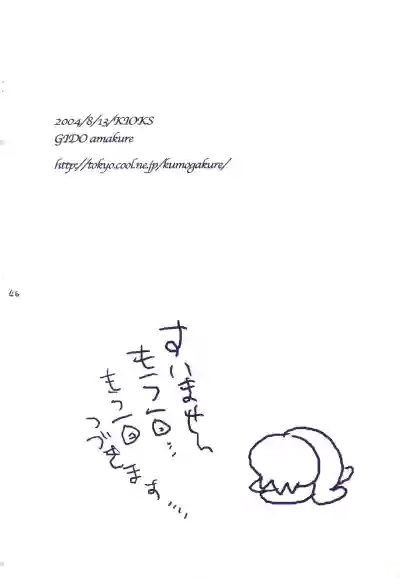 2004/8/13/KIOKS
GIDO amakure
http://tokyo.cool.ne.jp/kumogakure/
46
すいません
もう一回…
もう一回
つづきます….